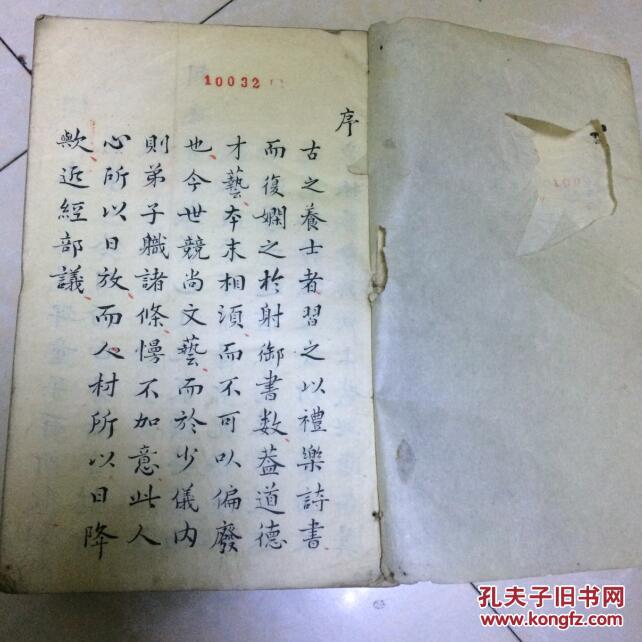 10032
序
古之養士者習之以禮樂詩書
而復嫻之於射御書數葢道德
才藝本末相須而不可以偏廢
也今世競尚文藝而於少儀内
則弟子職諸條慢不加意此人
心所以日放而人材所以日降
歟近經部議
孔夫子旧书网
www.kongfz.com